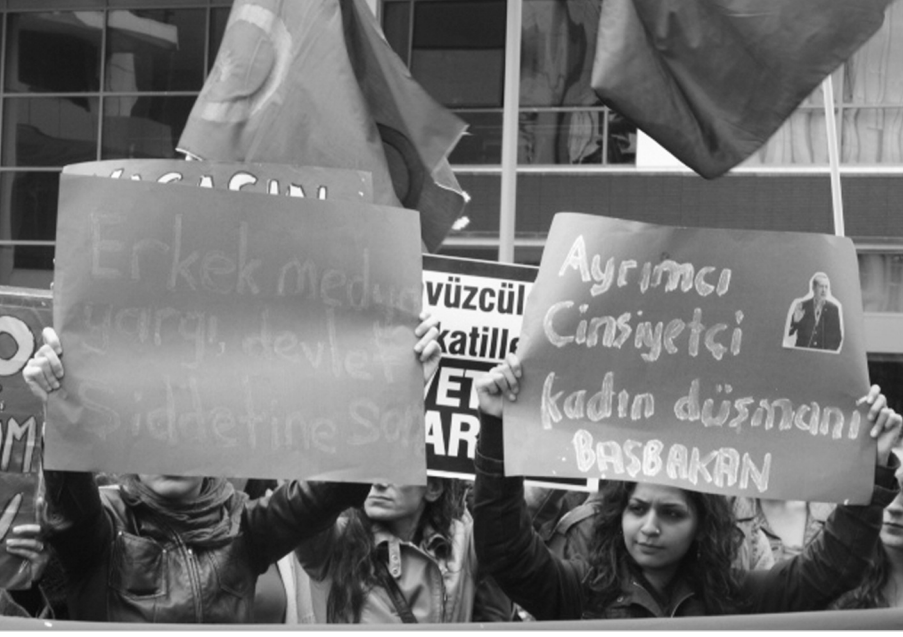 Erkek medya
yargı, devlet
Şiddetine Son
vüzcül
katille
VET
AR
Ayrımcı
Cinsiyetçi
kadın düşmanı
BAŞBAKAN